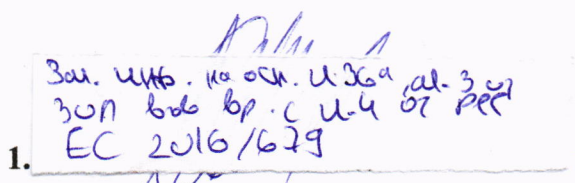 Зал. инф. на осн. чл. 36а, ал. 3 от
ЗОП във вр. с чл. 4 от рег
1. ЕС 2016/679